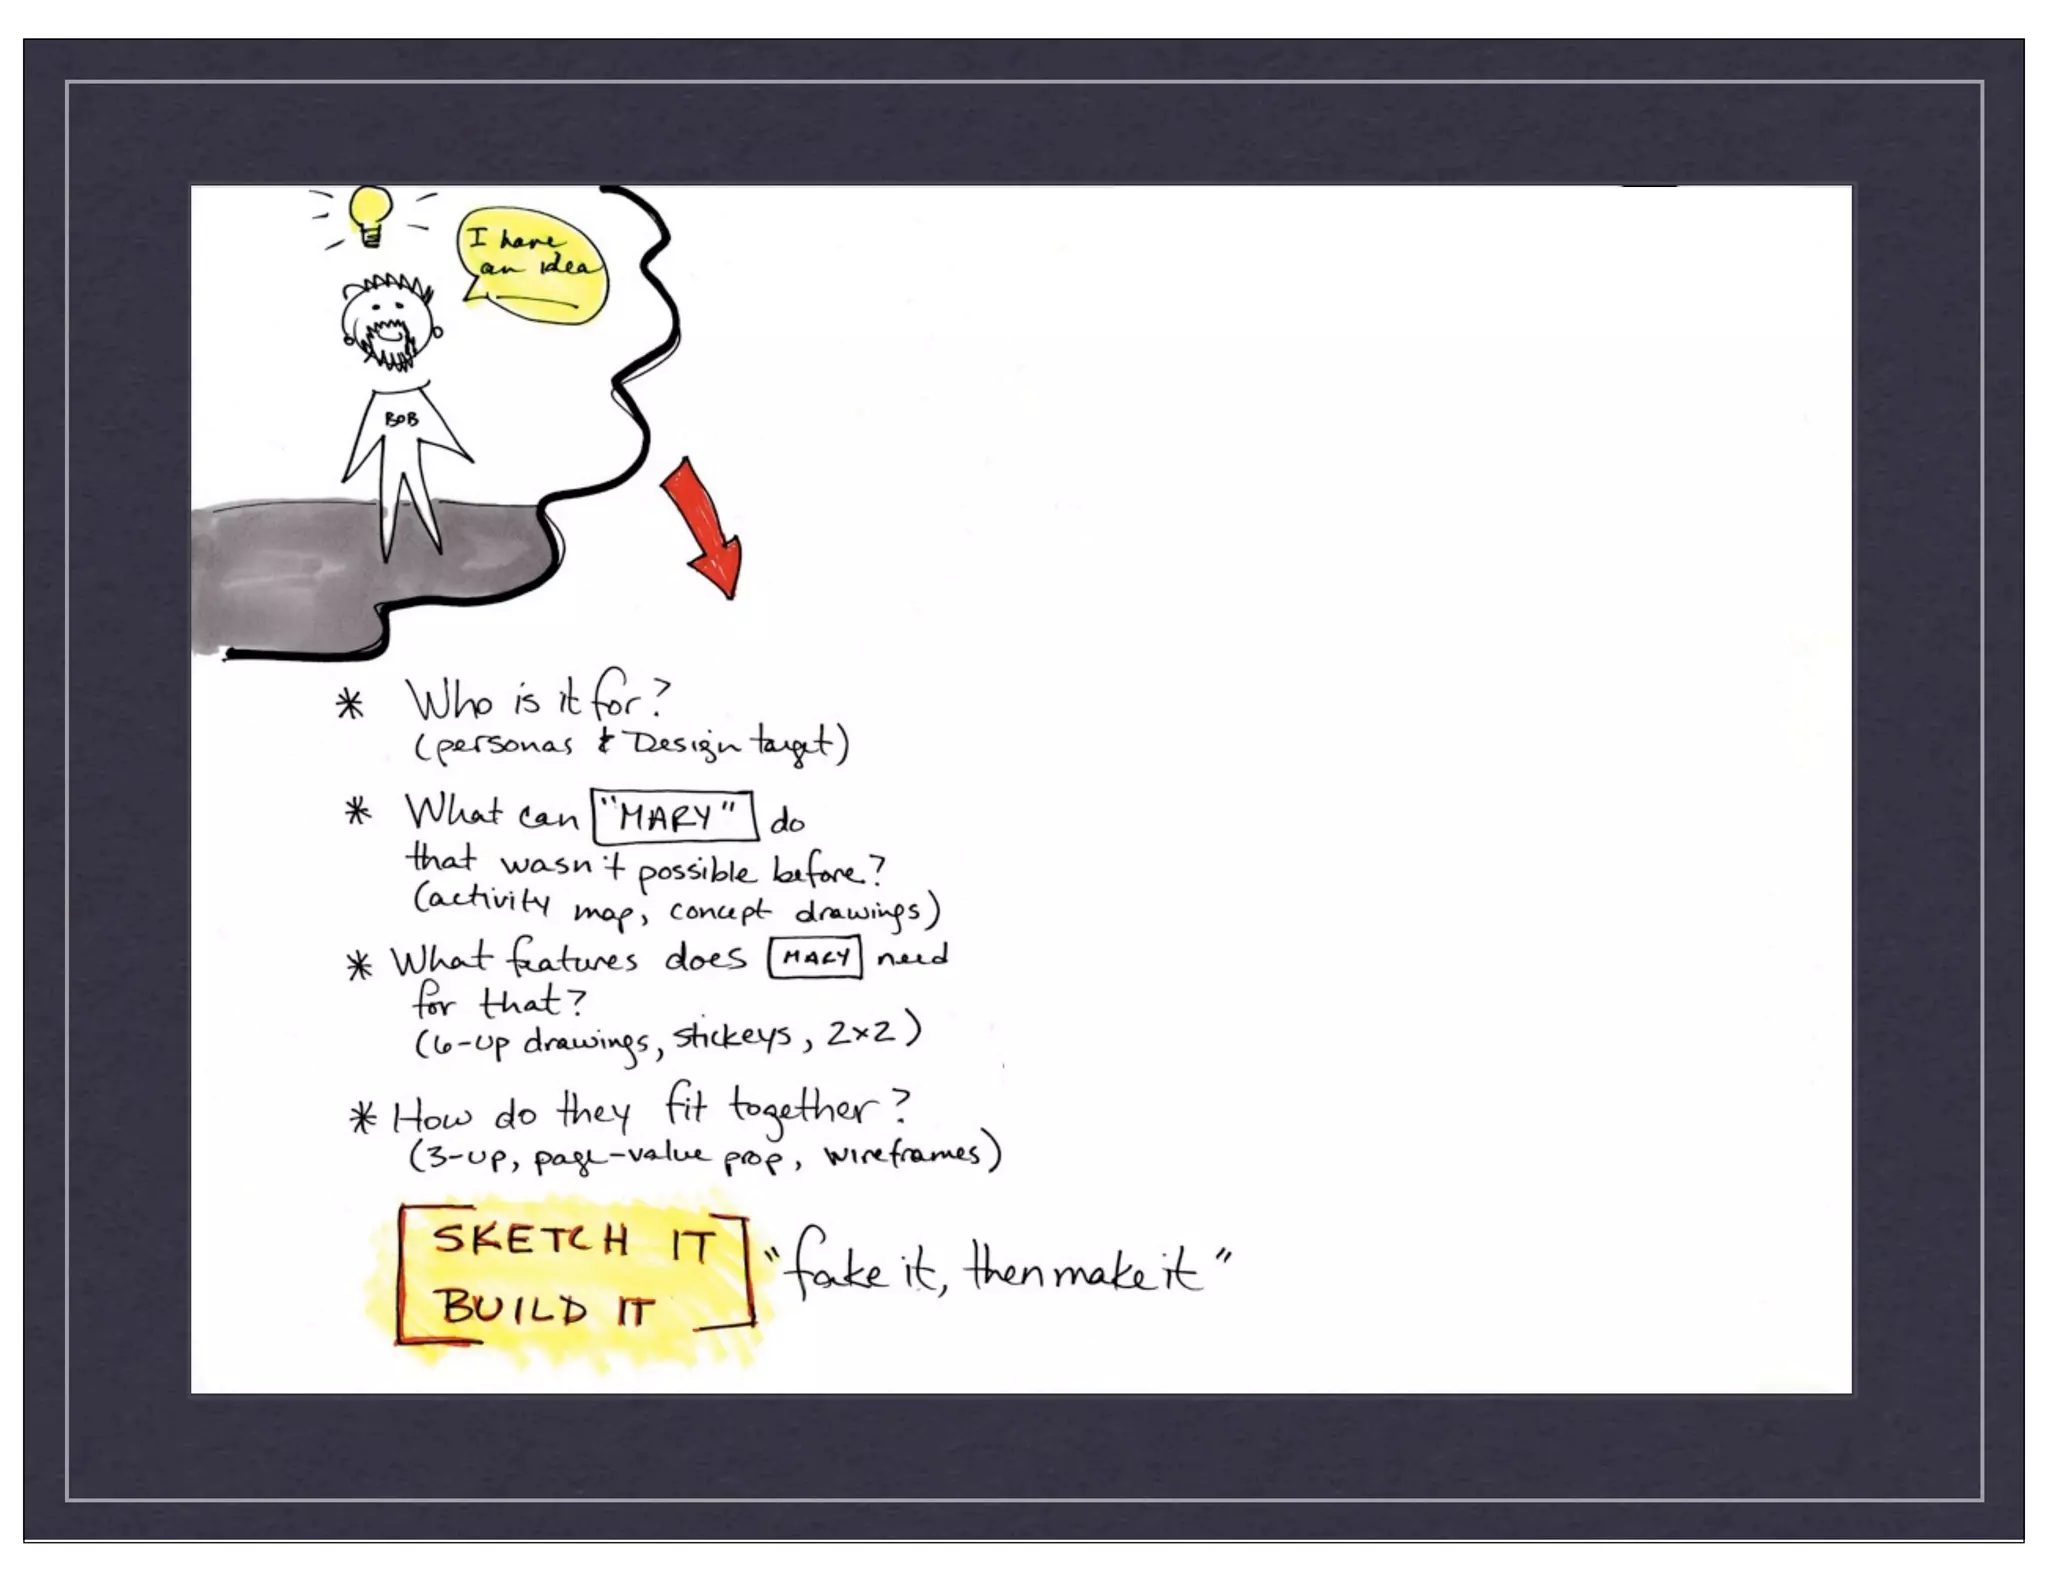 I have
an idea
BOB
* Who is it for?
(personas & Design target)
* What can "MARY" do
that wasn't possible before?
(activity map, concept drawings)
* What features does MARY need
for that?
(6-up drawings, stickeys, 2x2)
* How do they fit together?
(3-up, page-value prop, wireframes)
SKETCH IT
BUILD IT
"fake it, then make it"